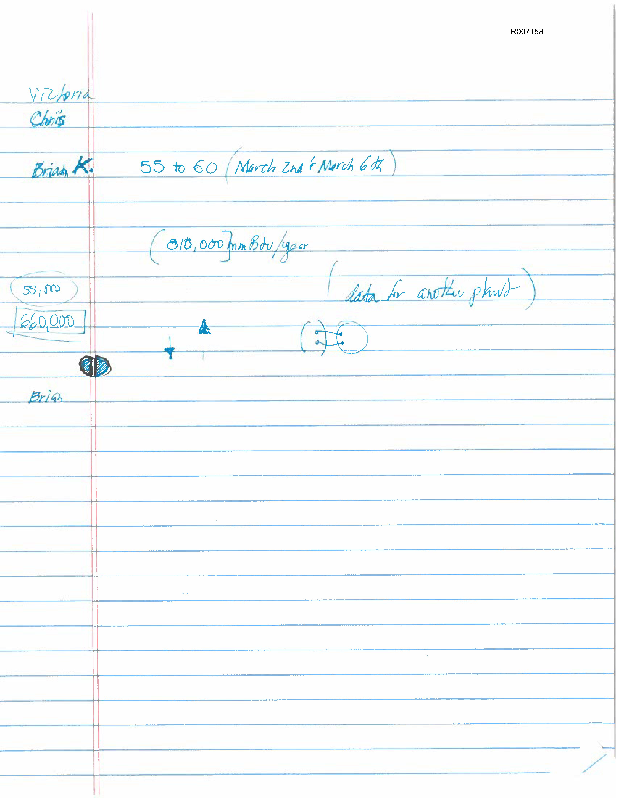 Victoria
Chris
Brian K. 55 to 60 (March 2nd & March 6th)
(318,000] mmBtu/year
55,000
(data for another plant)
660,000
Brian